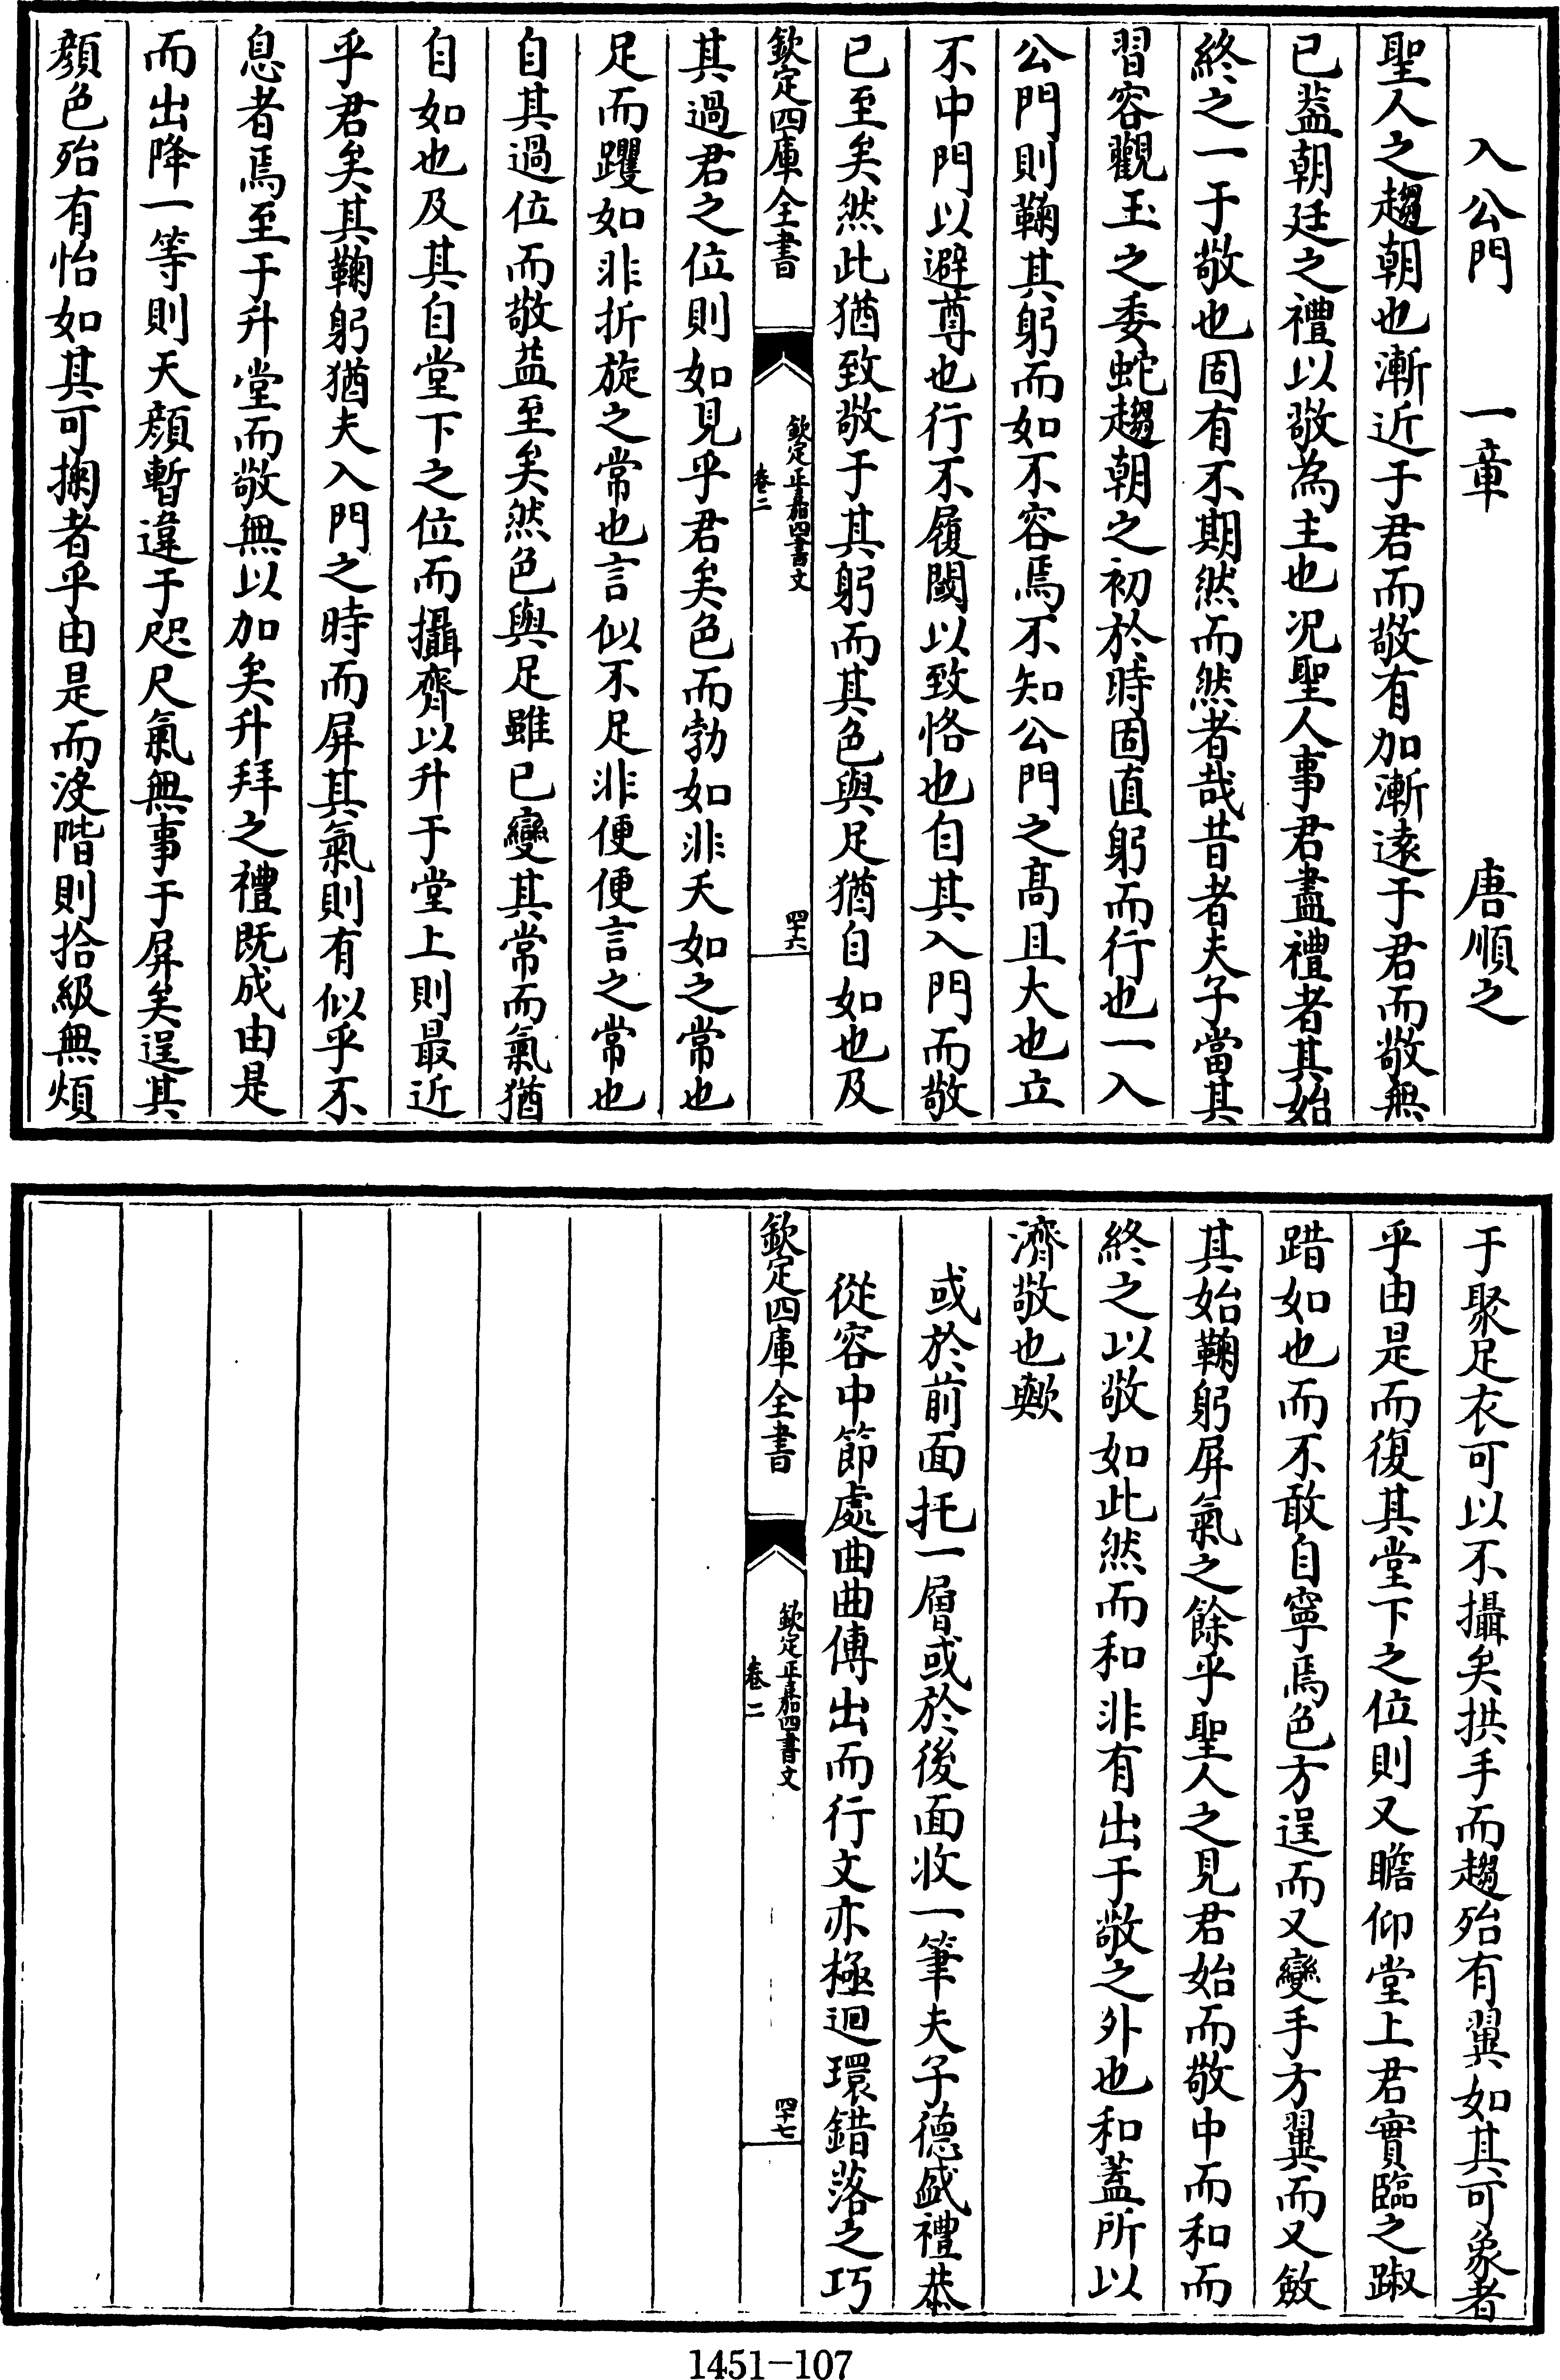 入公門　一章　唐順之
聖人之趨朝也漸近于君而敬有加漸遠于君而敬無
已葢朝廷之禮以敬為主也况聖人事君盡禮者其始
終之一于敬也固有不期然而然者哉昔者夫子當其
習容觀玉之委蛇趨朝之初於時固直躬而行也一入
公門則鞠其躬而如不容焉不知公門之髙且大也立
不中門以避尊也行不履閾以致恪也自其入門而敬
已至矣然此猶致敬于其躬而其色與足猶自如也及
欽定四庫全書
欽定正嘉四書文
卷二
四十六
其過君之位則如見乎君矣色而勃如非夭如之常也
足而躩如非折旋之常也言似不足非便便言之常也
自其過位而敬葢至矣然色與足雖已變其常而氣猶
自如也及其自堂下之位而攝齊以升于堂上則最近
乎君矣其鞠躬猶夫入門之時而屏其氣則有似乎不
息者焉至于升堂而敬無以加矣升拜之禮既成由是
而出降一等則天顔暫違于咫尺氣無事于屏矣逞其
顔色殆有怡如其可掬者乎由是而没階則拾級無煩
于聚足衣可以不攝矣拱手而趨殆有翼如其可象者
乎由是而復其堂下之位則又瞻仰堂上君實臨之踧
踖如也而不敢自寧焉色方逞而又變手方翼而又斂
其始鞠躬屏氣之餘乎聖人之見君始而敬中而和而
終之以敬如此然而和非有出于敬之外也和蓋所以
濟敬也歟
或於前面托一層或於後面收一筆夫子德盛禮恭
從容中節處曲曲傳出而行文亦極迴環錯落之巧
欽定四庫全書
欽定正嘉四書文
卷二
四十七
1451-107